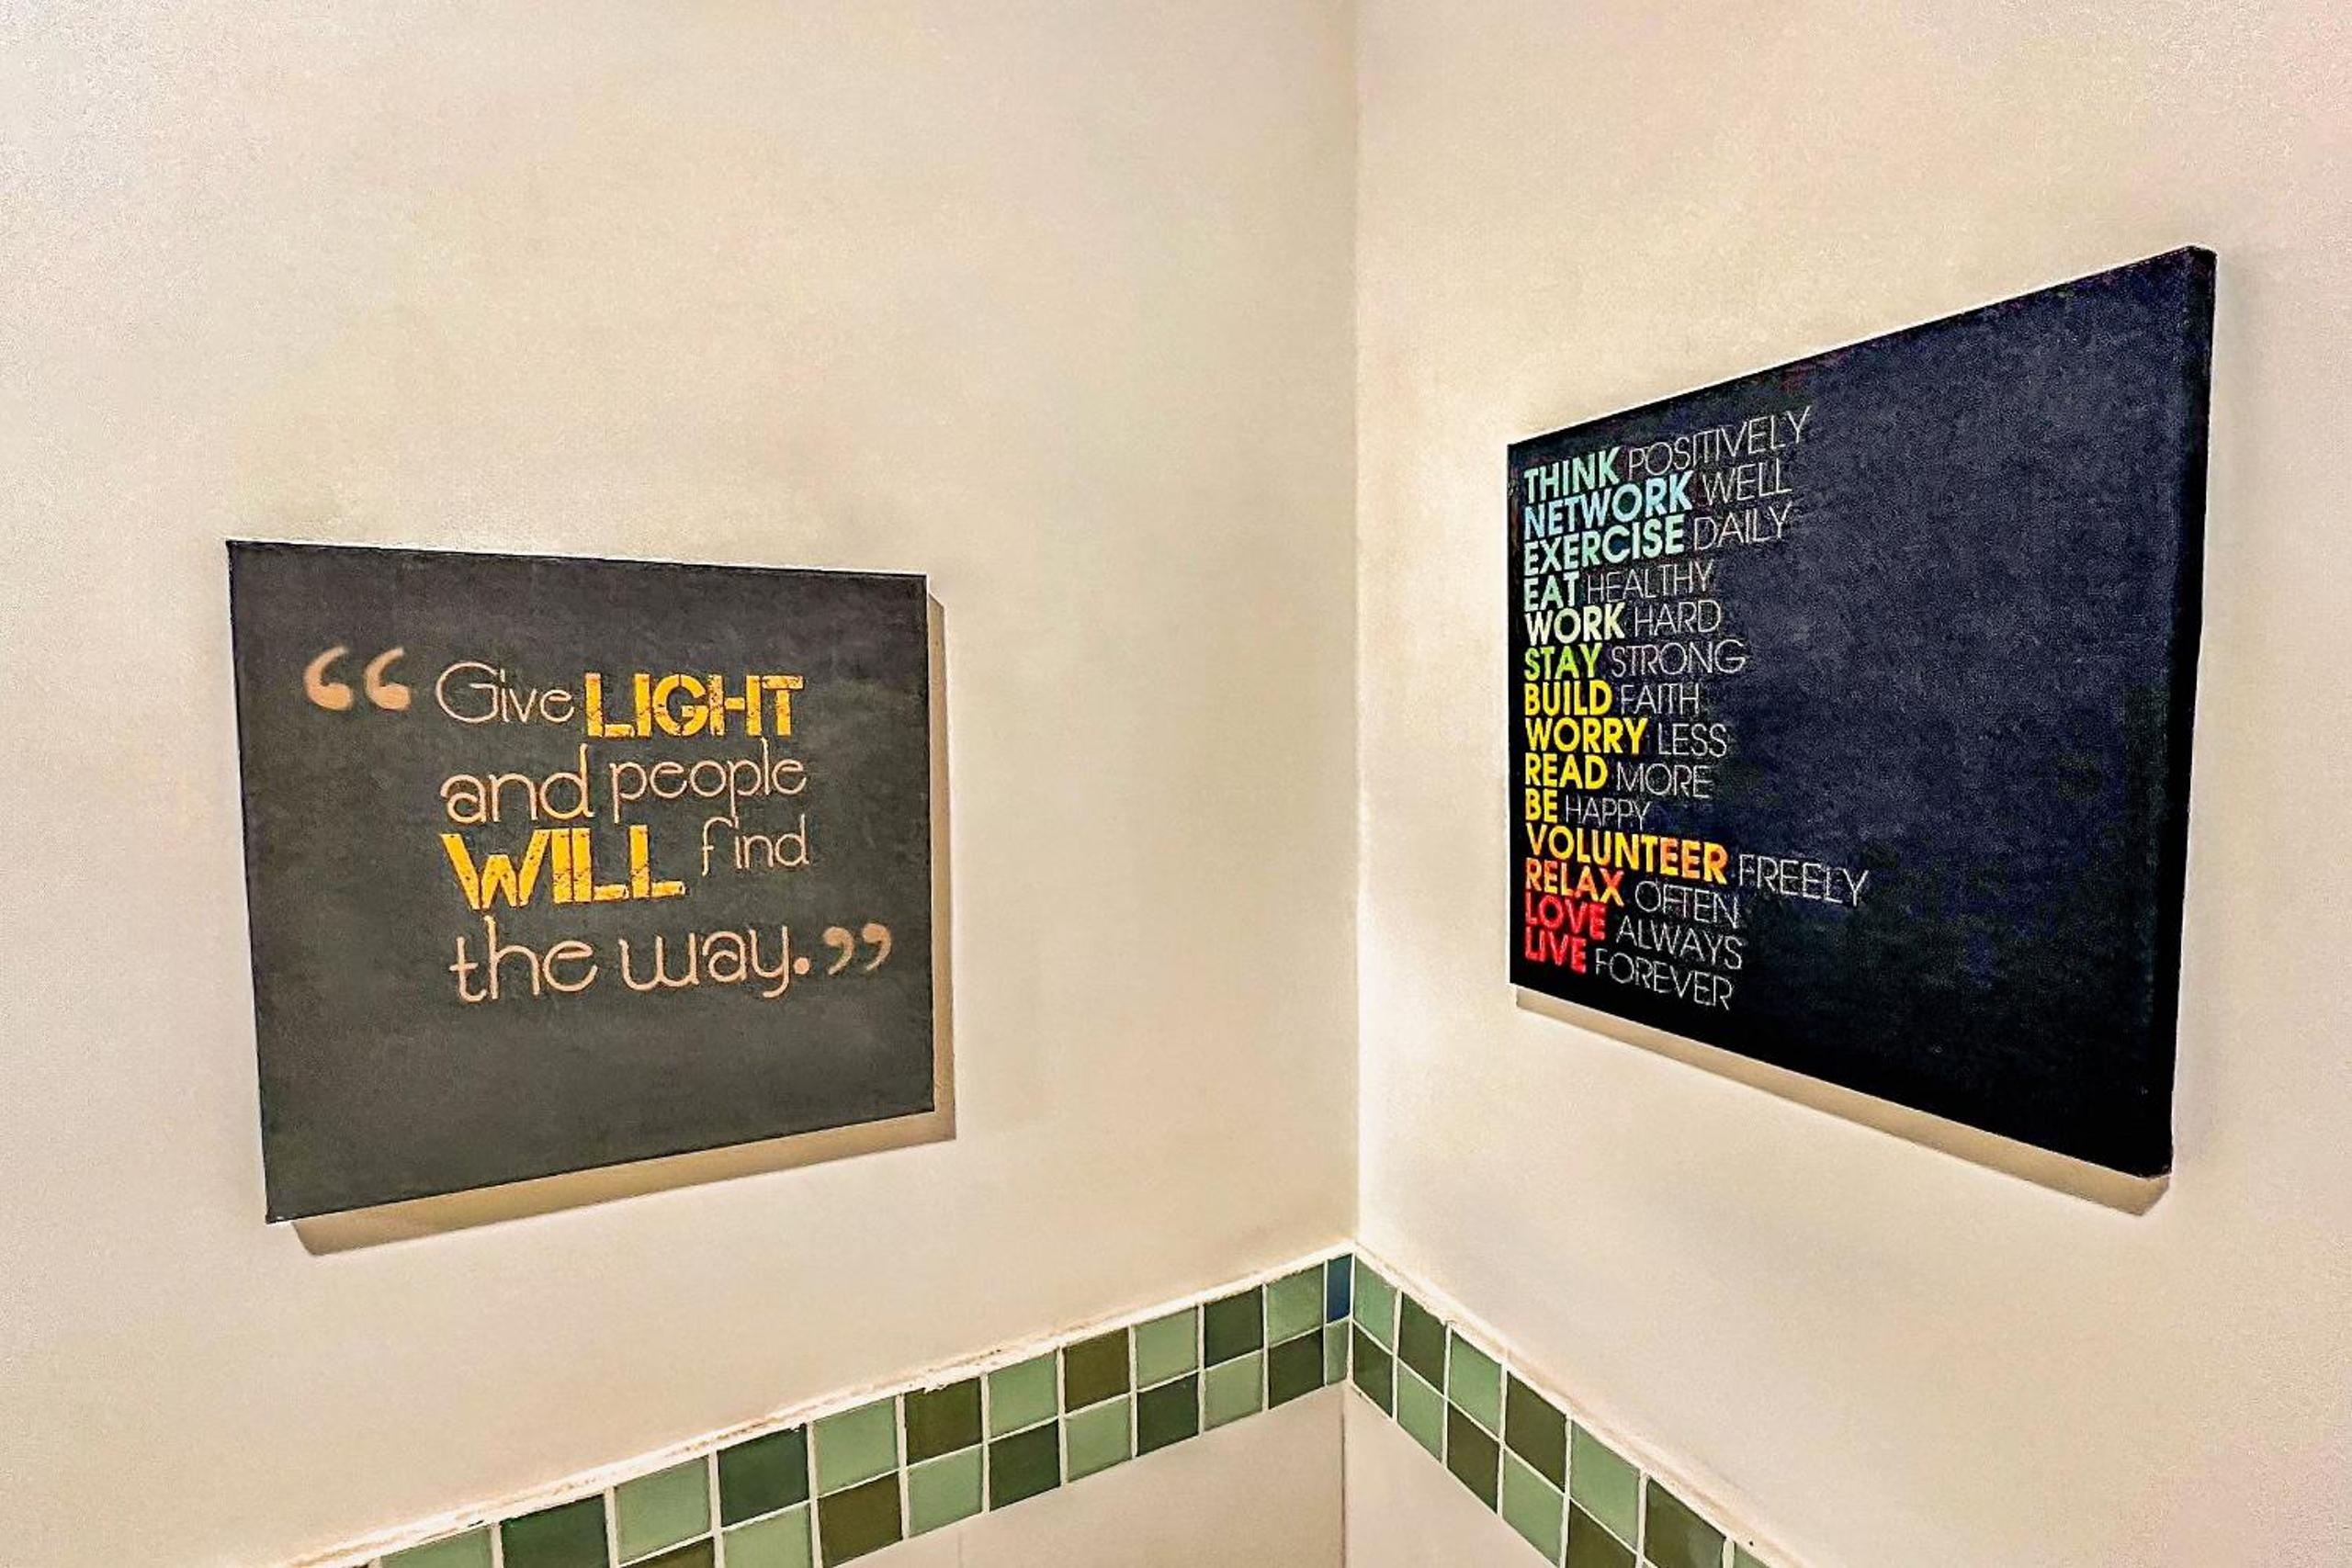 “ Give LIGHT
and people
WILL find
the way.”
THINK POSITIVELY
NETWORK WELL
EXERCISE DAILY
EAT HEALTHY
WORK HARD
STAY STRONG
BUILD FAITH
WORRY LESS
READ MORE
BE HAPPY
VOLUNTEER FREELY
RELAX OFTEN
LOVE ALWAYS
LIVE FOREVER